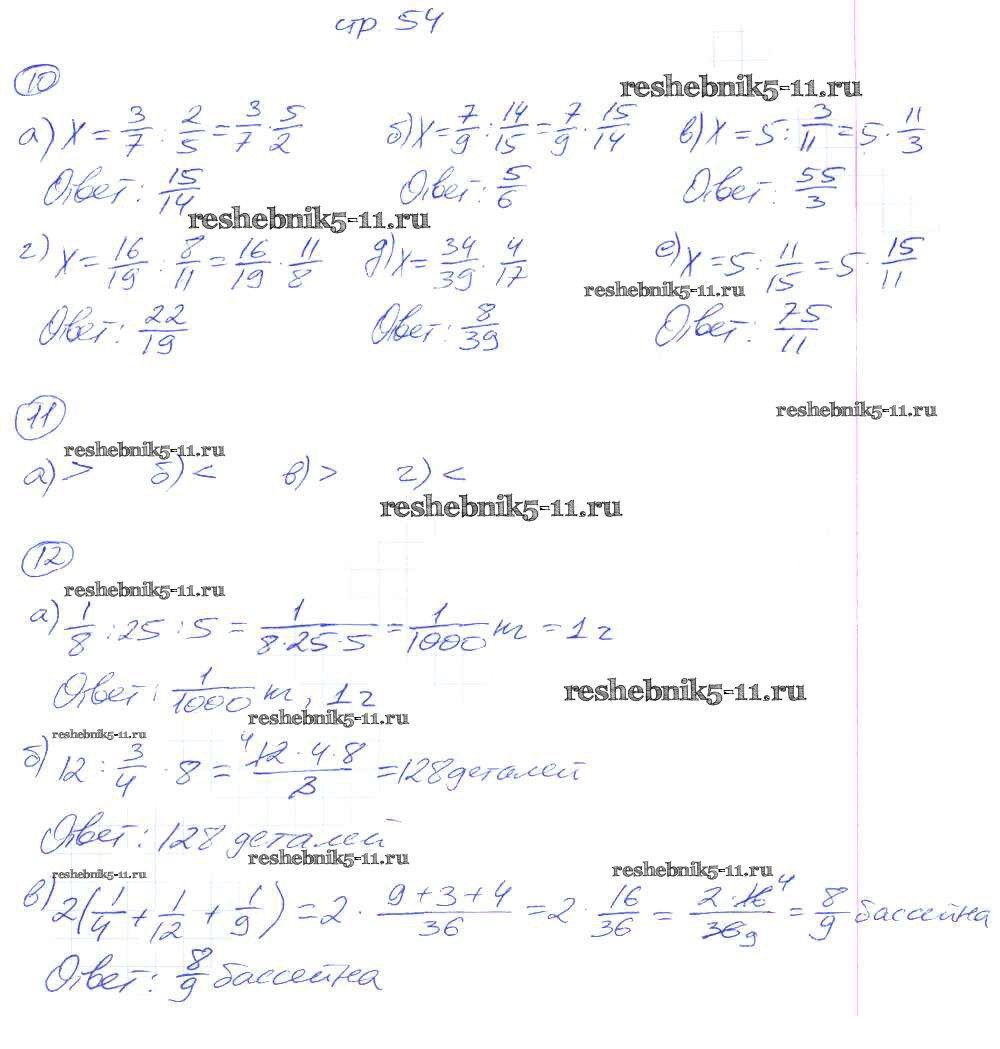 стр. 54
10
reshebnik5-11.ru
а) x = 3/7 : 2/5 = 3/7 · 5/2 б) x = 7/9 : 14/15 = 7/9 · 15/14 в) x = 5 : 3/11 = 5 · 11/3
Ответ: 15/14 Ответ: 5/6 Ответ: 55/3
reshebnik5-11.ru
г) x = 16/19 : 8/11 = 16/19 · 11/8 д) x = 34/39 · 4/17 е) x = 5 : 11/15 = 5 · 15/11
reshebnik5-11.ru
Ответ: 22/19 Ответ: 8/39 Ответ: 75/11
11
reshebnik5-11.ru
reshebnik5-11.ru
а) > б) < в) > г) <
reshebnik5-11.ru
12
reshebnik5-11.ru
а) 1/8 : 25 : 5 = 1/(8·25·5) = 1/1000 кг = 1 г
Ответ: 1/1000 кг, 1 г
reshebnik5-11.ru
reshebnik5-11.ru
reshebnik5-11.ru
б) 12 : 3/4 · 8 = 4 12·4·8/3 = 128 деталей
Ответ: 128 деталей
reshebnik5-11.ru
reshebnik5-11.ru
reshebnik5-11.ru
в) 2(1/4 + 1/12 + 1/9) = 2 · (9+3+4)/36 = 2 · 16/36 = 2·16 4/36 9 = 8/9 бассейна
Ответ: 8/9 бассейна